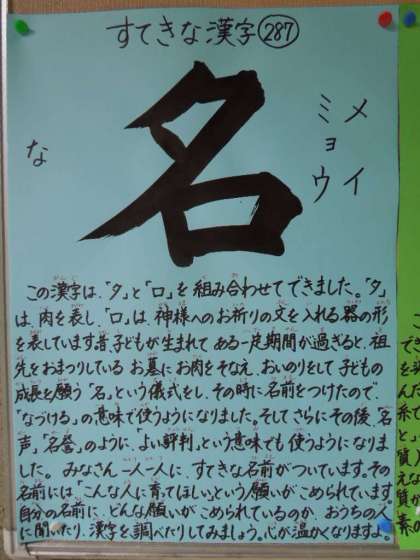 すてきな漢字287
名
メイ
ミョウ
な
この漢字は、「夕」と「口」を組み合わせてできました。「夕」
は、肉を表し、「口」は、神様へのお祈りの文を入れる器の形
を表しています。昔、子どもが生まれてある一定期間が過ぎると、祖
先をおまつりしているお墓にお肉をそなえ、おいのりをして子どもの
成長を願う「名」という儀式をし、その時に名前をつけたので、
「なづける」の意味で使うようになりました。そしてさらにその後、「名
声」、「名誉」のように、「よい評判」という意味でも使うようになりま
した。みなさん一人一人に、すてきな名前がついています。その
名前には「こんな人に育ってほしい」という願いがこめられています。
自分の名前に、どんな願いがこめられているのか、おうちの人
に聞いたり、漢字を調べたりしてみましょう。心が温かくなりますよ。